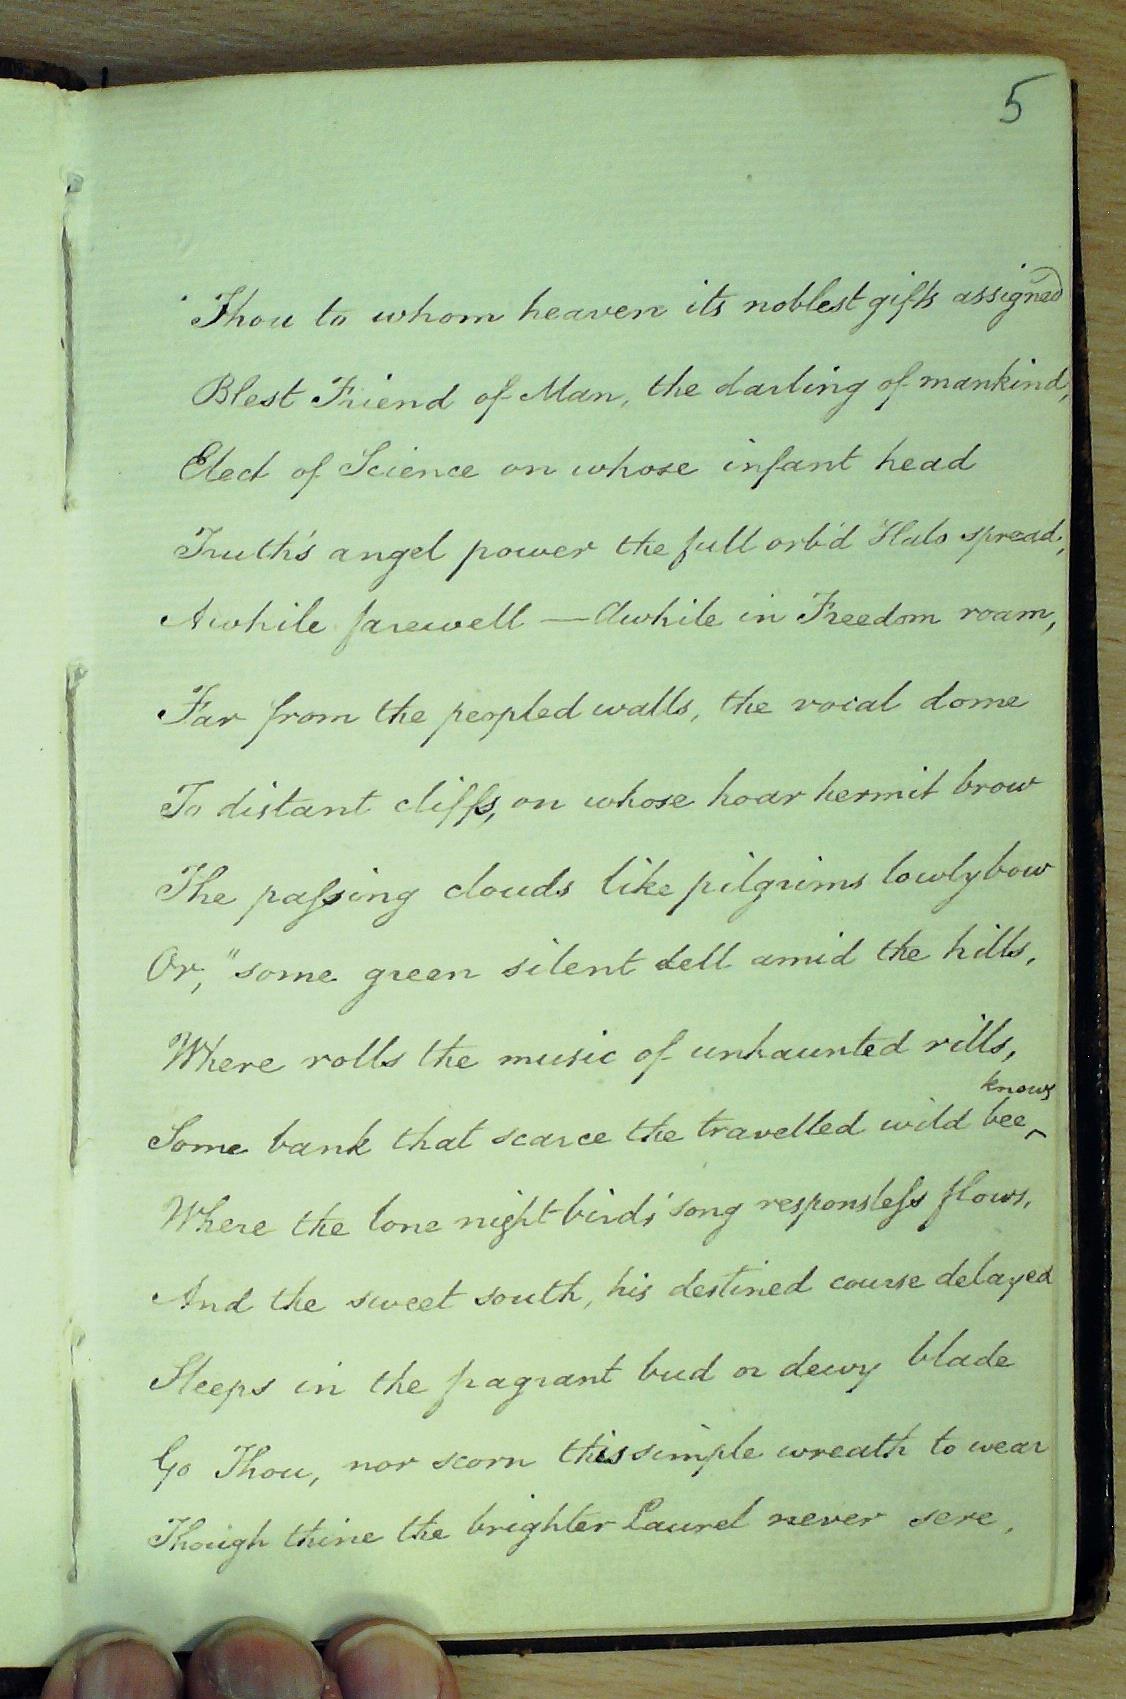 5
Thou to whom heaven its noblest gifts assigned
Blest Friend of Man, the darling of mankind,
Elect of Science on whose infant head
Truth's angel power the full orb'd Halo spread;
Awhile farewell — Awhile in Freedom roam,
Far from the peopled walls, the vocal dome
To distant cliffs, on whose hoar hermit brow
The passing clouds like pilgrims lowly bow
Or, "some green silent dell amid the hills,
Where rolls the music of unhaunted rills,
knows
Some bank that scarce the travelled wild bee ‸
Where the lone night birds' song responsless flows,
And the sweet south, his destined course delayed
Sleeps in the fragrant bud or dewy blade
Go Thou, nor scorn this simple wreath to wear
Though thine the brighter Laurel never sere,